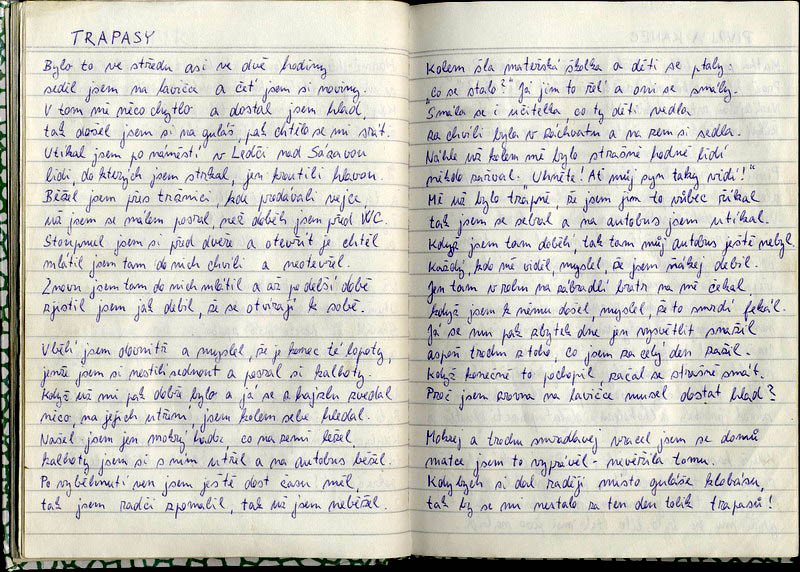 TRAPASY
Bylo to ve středu asi ve dvě hodiny
seděl jsem na lavičce a čet' jsem si noviny.
V tom mě něco chytlo a dostal jsem hlad,
tak došel jsem si na guláš, pak chtělo se mi srát.
Utíkal jsem po náměstí v Ledči nad Sázavou
lidi, do kterých jsem strkal, jen kroutili hlavou.
Běžel jsem přes tržnici, kde prodávali vejce,
už jsem se málem posral, než doběh jsem před WC.
Stoupnul jsem si před dveře a otevřít je chtěl
mlátil jsem tam do nich chvíli a neotevřel.
Znovu jsem tam do nich mlátil a až po delší době
zjistil jsem jak debil, že se otvírají k sobě.
Vběh' jsem dovnitř a myslel, že je konec té lopoty,
jenže jsem si nestihl sednout a posral si kalhoty.
Když už mi pak dobře bylo a já se z hajzlu zvedal
něco, na jejich utření, jsem kolem sebe hledal.
Našel jsem jen mokrej hadr, co na zemi ležel,
kalhoty jsem si s ním utřel a na autobus běžel.
Po vyběhnutí ven jsem ještě dost času měl,
tak jsem radši zpomalil, tak už jsem neběžel.
Kolem šla mateřská školka a děti se ptaly:
"Co se stalo?" Já jim to řek' a oni se smály.
Smála se i učitelka co ty děti vedla
za chvíli byla v záchvatu a na zem si sedla.
Náhle už kolem mě bylo strašně hodně lidí
někdo zařval: "Uhněte! Ať můj syn taky vidí!"
Mě už bylo trapně, že jsem jim to vůbec říkal
tak jsem se sebral a na autobus jsem utíkal.
Když jsem tam doběh, tak tam můj autobus ještě nebyl
každý, kdo mě viděl, myslel, že jsem ňákej debil.
Jen tam v rohu na zábradlí bratr na mě čekal
když jsem k němu došel, myslel, že to smrdí fekál.
Já se mu pak zbytek dne jen vysvětlit snažil
aspoň trochu z toho, co jsem za celý den zažil.
Když konečně to pochopil začal se strašně smát.
Proč jsem zrovna na lavičce musel dostat hlad?
Mokrej a trochu smradlavej vracel jsem se domů
matce jsem to vyprávěl - nevěřila tomu.
Kdybych si dal raději místo guláše klobásu,
tak by se mi nestalo za ten den tolik trapasů!